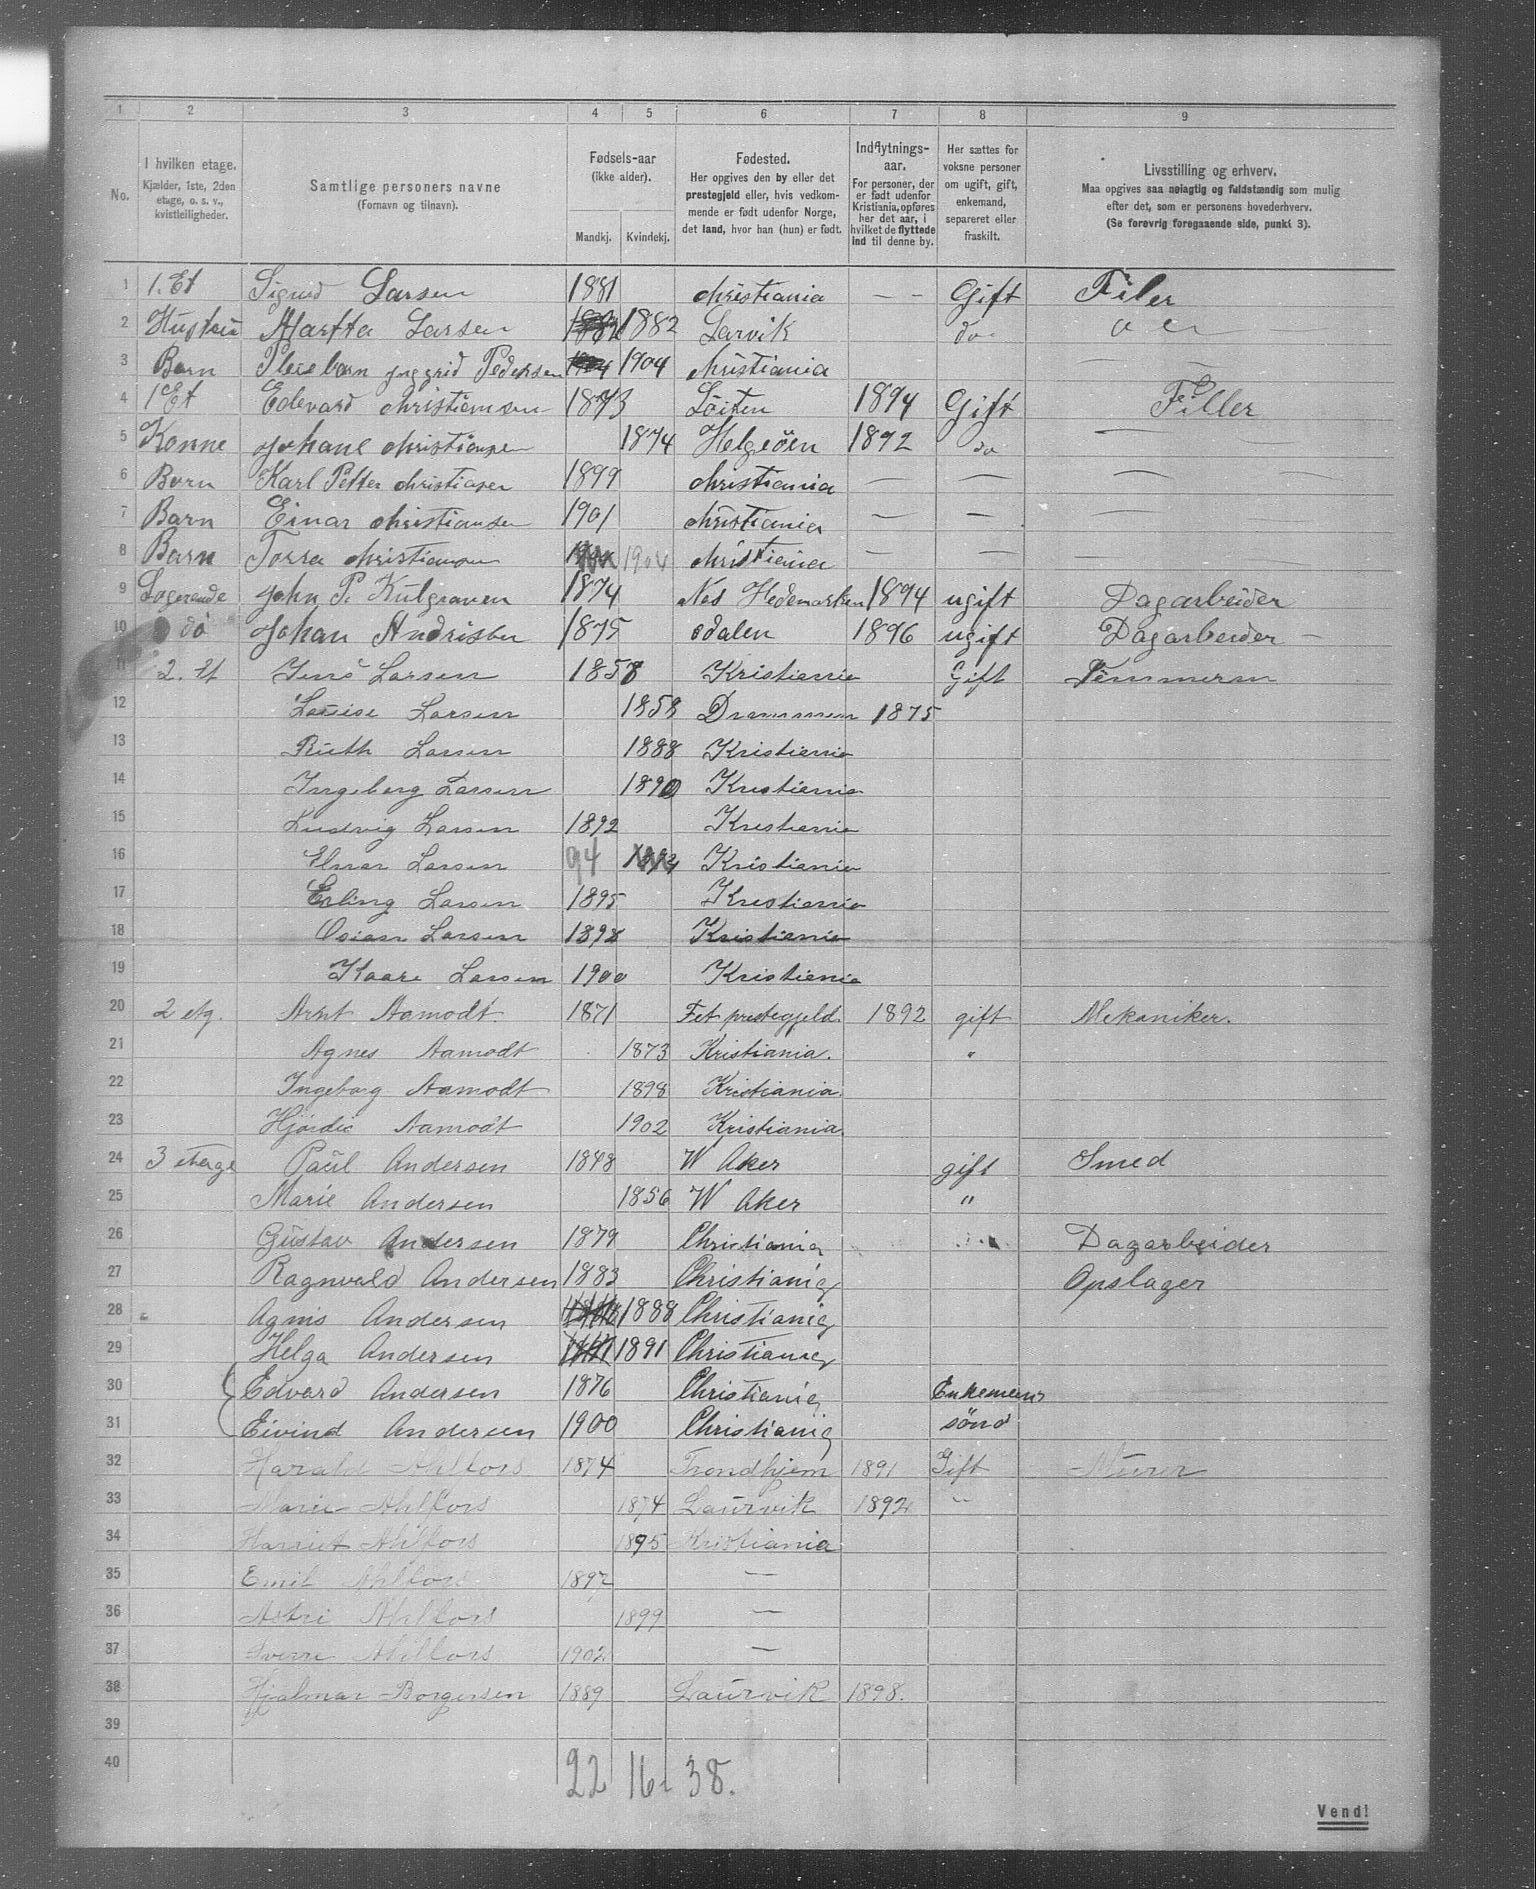 1 2 3 4 5 6 7 8 9
No.
I hvilken etage.
Kjælder, 1ste, 2den
etage, o. s. v.,
kvistleiligheder.
Samtlige personers navne
(Fornavn og tilnavn).
Fødsels-aar
(ikke alder).
Mandkj. Kvindekj.
Fødested.
Her opgives den by eller det
prestegjeld eller, hvis vedkom-
mende er født udenfor Norge,
det land, hvor han (hun) er født.
Indflytnings-
aar.
For personer, der
er født udenfor
Kristiania, opføres
her det aar, i
hvilket de flyttede
ind til denne by.
Her sættes for
voksne personer
om ugift, gift,
enkemand,
separeret eller
fraskilt.
Livsstilling og erhverv.
Maa opgives saa nøiagtig og fuldstændig som mulig
efter det, som er personens hovederhverv.
(Se forøvrig foregaaende side, punkt 3).
1 1. Et Sigurd Larsen 1881 christiania — — Gift Filer
2 Hustru Martta Larsen 1882 Larvik do
3 Barn Pleiebarn Inggrid Pedersen 1904 christiania
4 1 Et Edevard christiansen 1873 Löiten 1894 Gift Filler
5 Konne Johane christiansen 1874 Helgeöen 1892 do
6 Barn Karl Petter christiansen 1899 christiania — —
7 Barn Einar christiansen 1901 christiania — —
8 Barn Torra christiansen 1904 christiania — —
9 Logerende John P. Kulgraven 1874 Nes Hedemarken 1894 ugift Dagarbeider
10 do Johan Andrisen 1875 odalen 1896 ugift Dagarbeider —
11 2. Et Jens Larsen 1858 Kristiania Gift Tømmerm
12 Louise Larsen 1858 Drammen 1875
13 Ruth Larsen 1888 Kristiania
14 Ingeborg Larsen 1890 Kristiania
15 Ludvig Larsen 1892 Kristiania
16 Einar Larsen 94 Kristiania
17 Erling Larsen 1895 Kristiania
18 Osian Larsen 1898 Kristiania
19 Kaare Larsen 1900 Kristiania
20 2 etg. Arnt Aamodt 1871 Fet prestegjeld. 1892 gift Mekaniker.
21 Agnes Aamodt 1873 Kristiania. "
22 Ingeborg Aamodt 1898 Kristiania.
23 Hjördis Aamodt 1902 Kristiania.
24 3 etarge Paul Andersen 1848 W Aker gift Smed
25 Marie Andersen 1856 W Aker "
26 Gustav Andersen 1879 Christiania Dagarbeider
27 Ragnvald Andersen 1883 Christiania Opslager
28 Agnis Andersen 1888 Christiania
29 Helga Andersen 1891 Christiania
30 Edvard Andersen 1876 Christiania Enkemand
31 Eivind Andersen 1900 Christiania sönd
32 Harald Ahlfors 1874 Trondhjem 1891 Gift Murer
33 Marie Ahlfors 1874 Laurvik 1892 "
34 Harriet Ahlfors 1895 Kristiania
35 Emil Ahlfors 1897 —
36 Astri Ahlfors 1899 —
37 Sverre Ahlfors 1902 —
38 Hjalmar Borgersen 1889 Laurvik 1898.
39
40
22 16 38.
Vend!